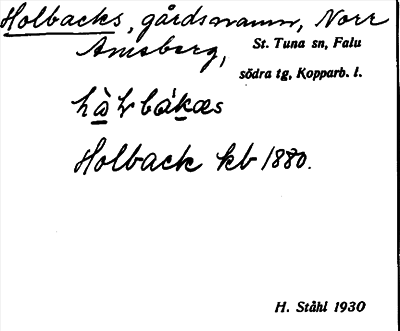 Holbacks, gårdsnamn, Norr
Amsberg, St. Tuna sn, Falu
södra tg, Kopparb. l.
Holback kb 1880.
H. Ståhl 1930